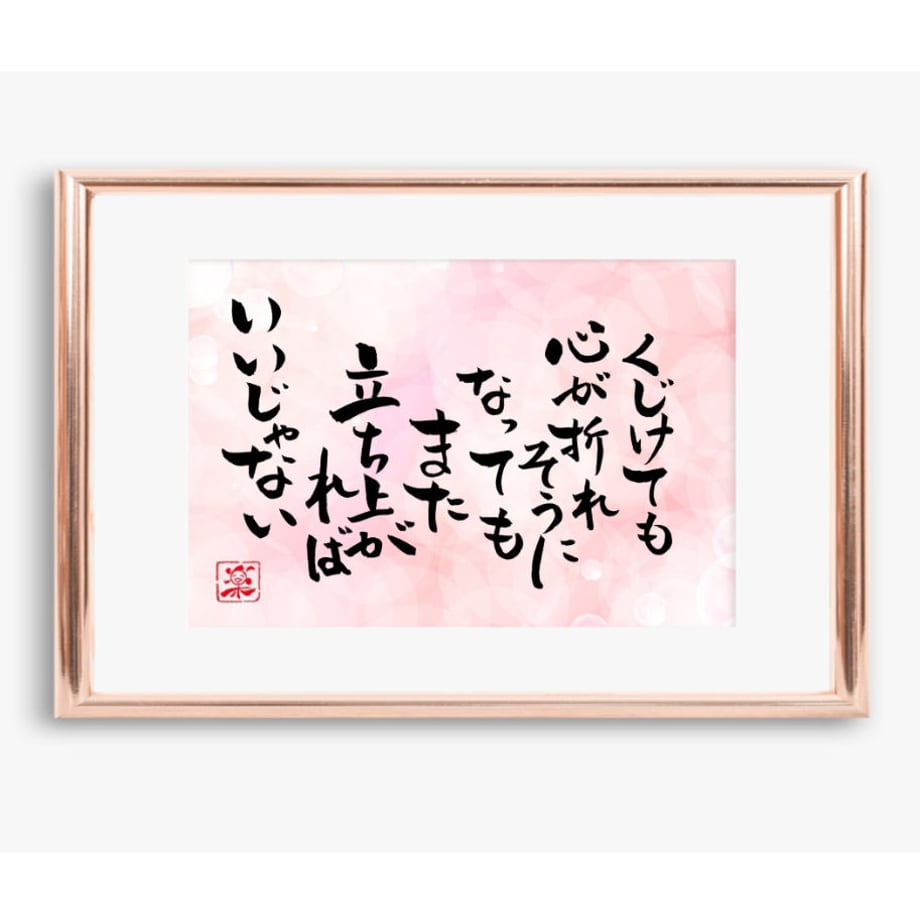 くじけても
心が折れ
そうに
なっても
また
立ち上が
れば
いいじゃない
楽